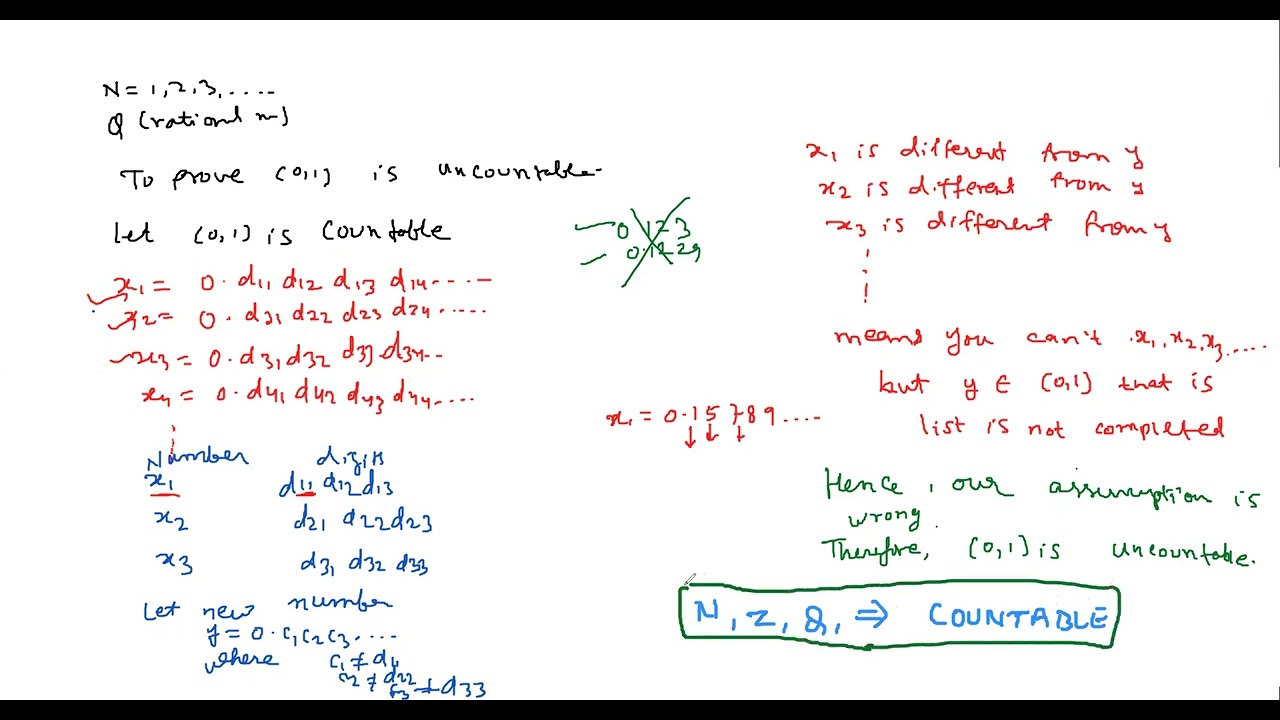 N = 1, 2, 3, ....
Q (rational n)
To prove (0,1) is uncountable.
Let (0,1) is countable
x1 = 0. d11 d12 d13 d14 ....
x2 = 0. d21 d22 d23 d24 .....
x3 = 0. d31 d32 d33 d34 ..
x4 = 0. d41 d42 d43 d44 ....
Number digits
x1 d11 d12 d13
x2 d21 d22 d23
x3 d31 d32 d33
Let new number
y = 0. c1 c2 c3 ....
where c1 ≠ d11
c2 ≠ d22
c3 ≠ d33
0 123
0.1229
x1 = 0.15789....
x1 is different from y
x2 is different from y
x3 is different from y
means you can't x1, x2, x3, ....
but y ∈ (0,1) that is
list is not completed
Hence, our assumption is
wrong.
Therefore, (0,1) is uncountable.
N, Z, Q, ⇒ COUNTABLE